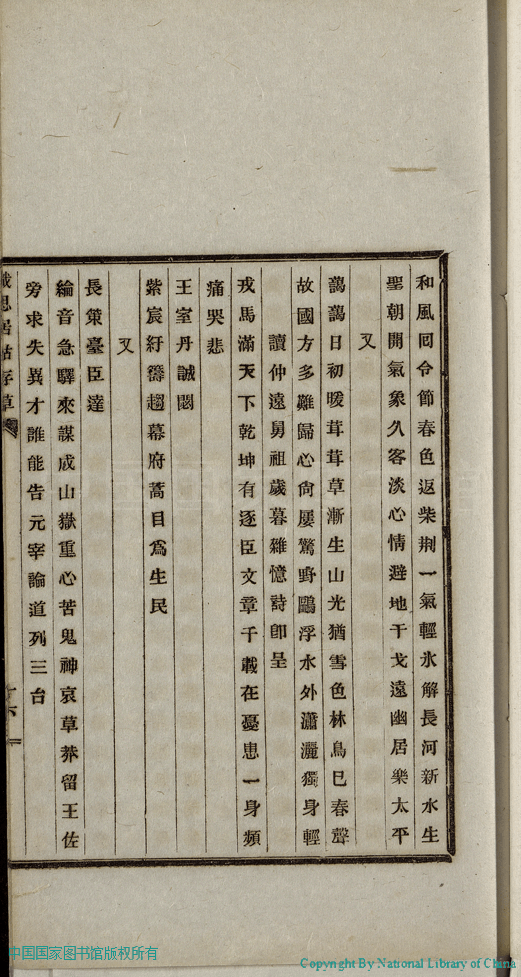 和風回令節春色返柴荆一氣輕氷解長河新水生
聖朝開氣象久客淡心情避地干戈遠幽居樂太平
又
藹藹日初暖茸茸草漸生山光猶雪色林鳥巳春聲
故國方多難歸心尙屢驚野鷗浮水外瀟灑獨身輕
讀仲遠舅祖歲暮雜憶詩卽呈
戎馬滿天下乾坤有逐臣文章千載在憂患一身頻
痛哭悲
王室丹誠閟
紫宸紆籌趨幕府蒿目爲生民
又
長策臺臣達
綸音急驛來謀成山嶽重心苦鬼神哀草莽留王佐
旁求失異才誰能告元宰論道列三台
思居
存草
中国国家图书馆版权所有
Copyright By National Library of China